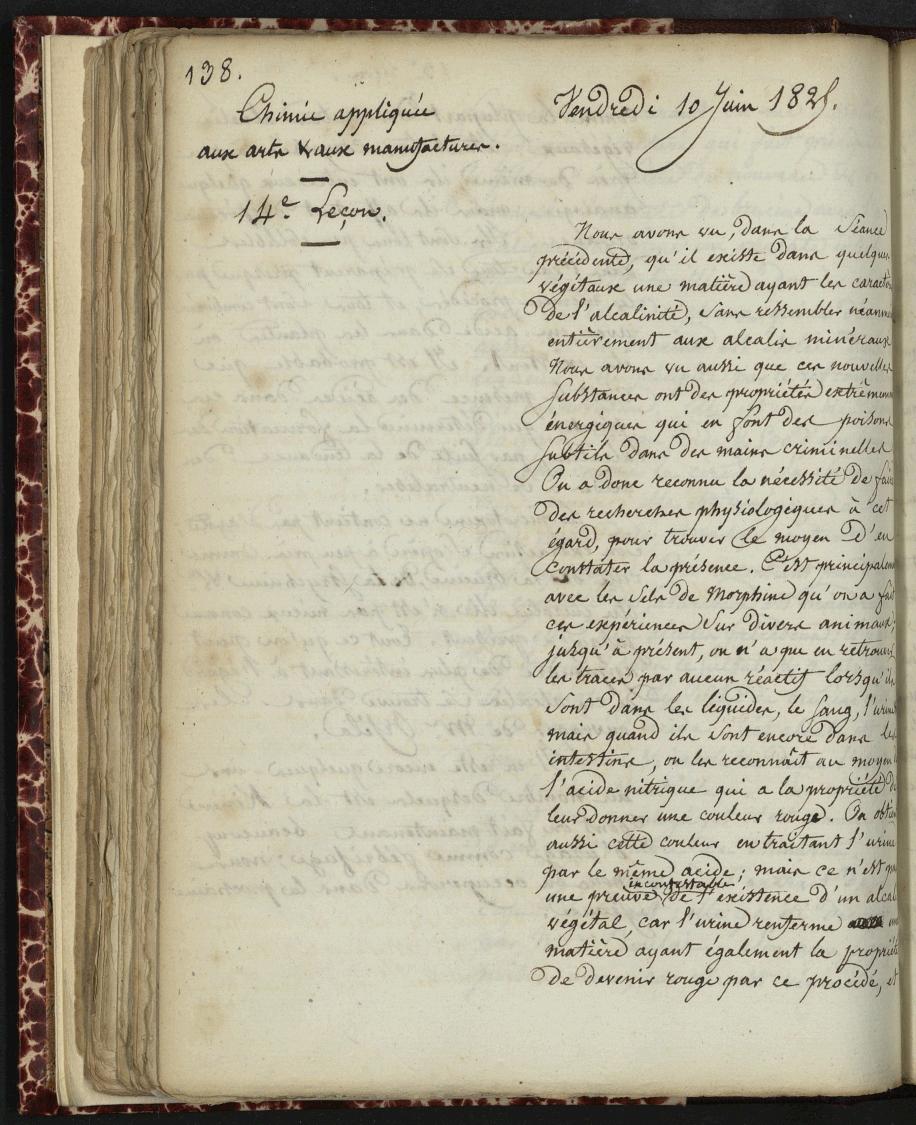 138.
Chimie appliquée
aux arts & aux manufactures.
14e Leçon.
Vendredi 10 Juin 1825.
Nous avons vu, dans la Séance
précédente, qu'il existe dans quelques
végétaux une matière ayant les caractè
de l'alcalinité, sans ressembler néanm
entièrement aux alcalis minéraux
Nous avons vu aussi que ces nouvelles
Substances ont des propriétés extrêmem
énergiques qui en font des poisons
subtils dans des mains criminelles
On a donc reconnu la nécessité de fai
des recherches physiologiques à cet
égard, pour trouver le moyen d'en
constater la présence. C'est principalem
avec les Sels de Morphine qu'on a fai
ces expériences Sur divers animaux;
jusqu'à présent, on n'a pu en retrouv
les traces par aucun réactif lorsqu'ils
Sont dans les liquides, le Sang, l'urine
mais quand ils Sont encore dans les
intestins, on les reconnaît au moyen
l'acide nitrique qui a la propriété de
leur donner une couleur rouge. On obtien
aussi cette couleur en traitant l'urine
par le même acide; mais ce n'est pas
une preuve incontestable de l'existence d'un alcal
végétal, car l'urine renferme une
matière ayant également la propriété
De devenir rouge par ce procédé, et